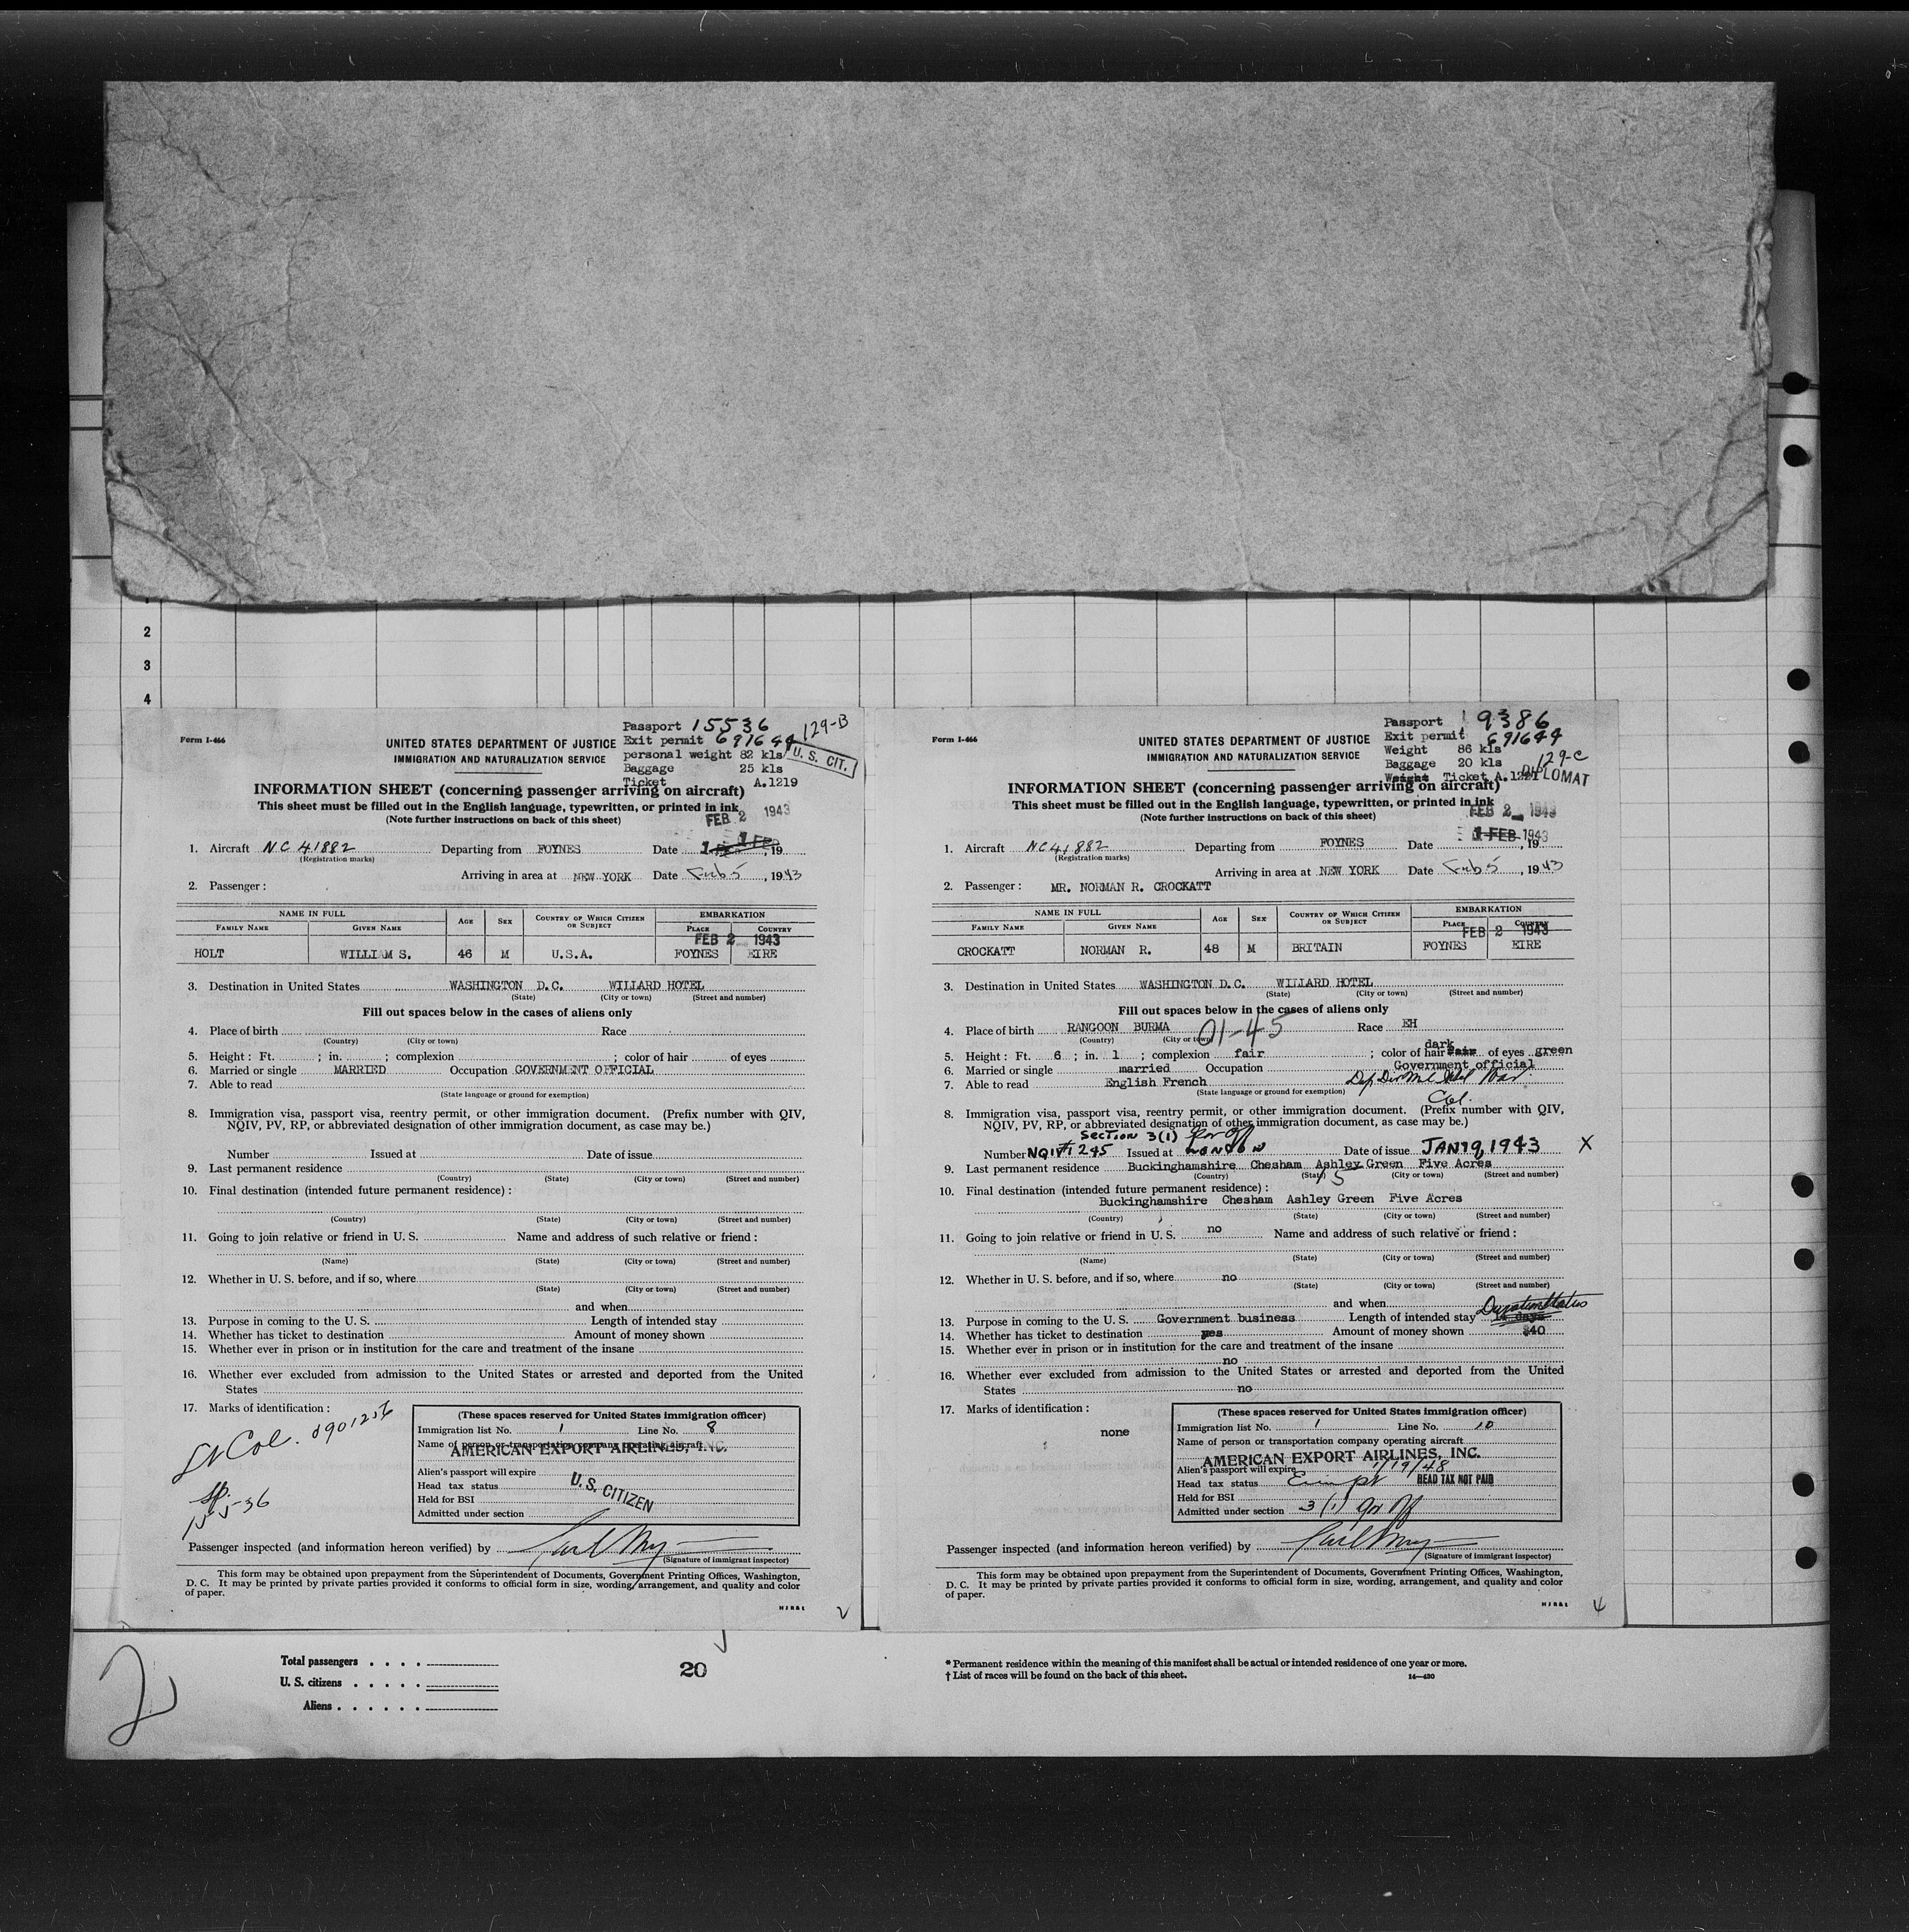 2
3
4
Form I-466
Passport 15536
129-B
UNITED STATES DEPARTMENT OF JUSTICE
Exit permit 691644
IMMIGRATION AND NATURALIZATION SERVICE
personal weight 82 kls
U. S. CIT.
Baggage 25 kls
Ticket A.1219
INFORMATION SHEET (concerning passenger arriving on aircraft)
This sheet must be filled out in the English language, typewritten, or printed in ink
(Note further instructions on back of this sheet)
FEB 2 1943
1 FEB
1. Aircraft NC 41882 Departing from FOYNES Date , 19
(Registration marks)
Arriving in area at NEW YORK Date Feb 5, 1943
2. Passenger:
NAME IN FULL AGE SEX COUNTRY OF WHICH CITIZEN OR SUBJECT EMBARKATION
FAMILY NAME GIVEN NAME PLACE COUNTRY
FEB 2 1943
HOLT WILLIAM S. 46 M U.S.A. FOYNES EIRE
3. Destination in United States WASHINGTON D.C. WILLARD HOTEL
(State) (City or town) (Street and number)
Fill out spaces below in the cases of aliens only
4. Place of birth Race
(Country) (City or town)
5. Height: Ft. ; in. ; complexion ; color of hair of eyes
6. Married or single MARRIED Occupation GOVERNMENT OFFICIAL
7. Able to read
(State language or ground for exemption)
8. Immigration visa, passport visa, reentry permit, or other immigration document. (Prefix number with QIV,
NQIV, PV, RP, or abbreviated designation of other immigration document, as case may be.)
Number Issued at Date of issue
9. Last permanent residence
(Country) (State) (City or town) (Street and number)
10. Final destination (intended future permanent residence):
(Country) (State) (City or town) (Street and number)
11. Going to join relative or friend in U. S. Name and address of such relative or friend:
(Name) (State) (City or town) (Street and number)
12. Whether in U. S. before, and if so, where
(State) (City or town) (Street and number)
and when
13. Purpose in coming to the U. S. Length of intended stay
14. Whether has ticket to destination Amount of money shown
15. Whether ever in prison or in institution for the care and treatment of the insane
16. Whether ever excluded from admission to the United States or arrested and deported from the United
States
17. Marks of identification:
Lt Col. 0901256
(These spaces reserved for United States immigration officer)
Immigration list No. 1 Line No. 8
Name of person or transportation company operating aircraft
AMERICAN EXPORT AIRLINES, INC.
Alien's passport will expire
Head tax status
U. S. CITIZEN
Held for BSI
Admitted under section
Passenger inspected (and information hereon verified) by
(Signature of immigrant inspector)
This form may be obtained upon prepayment from the Superintendent of Documents, Government Printing Offices, Washington,
D. C. It may be printed by private parties provided it conforms to official form in size, wording, arrangement, and quality and color
of paper.
Form I-466
Passport 19386
UNITED STATES DEPARTMENT OF JUSTICE
Exit permit 691644
IMMIGRATION AND NATURALIZATION SERVICE
Weight 86 kls
129-C
Baggage 20 kls
Weight Ticket A.1221
DIPLOMAT
INFORMATION SHEET (concerning passenger arriving on aircraft)
This sheet must be filled out in the English language, typewritten, or printed in ink
(Note further instructions on back of this sheet)
FEB 2 1943
1 FEB 1943
1. Aircraft NC41882 Departing from FOYNES Date , 19
(Registration marks)
Arriving in area at NEW YORK Date Feb 5, 1943
2. Passenger: MR. NORMAN R. CROCKATT
NAME IN FULL AGE SEX COUNTRY OF WHICH CITIZEN OR SUBJECT EMBARKATION
FAMILY NAME GIVEN NAME PLACE COUNTRY
FEB 2 1943
CROCKATT NORMAN R. 48 M BRITAIN FOYNES EIRE
3. Destination in United States WASHINGTON D.C. WILLARD HOTEL
(State) (City or town) (Street and number)
Fill out spaces below in the cases of aliens only
4. Place of birth RANGOON BURMA 01-45 Race EH
(Country) (City or town)
dark
5. Height: Ft. 6; in. 1; complexion fair; color of hair fair of eyes green
6. Married or single married Occupation Government official
7. Able to read English French
(State language or ground for exemption)
Col.
8. Immigration visa, passport visa, reentry permit, or other immigration document. (Prefix number with QIV,
NQIV, PV, RP, or abbreviated designation of other immigration document, as case may be.)
Section 3(1) Gov Off
Number NQIV#1245 Issued at LONDON Date of issue JAN 19, 1943 X
9. Last permanent residence Buckinghamshire Chesham Ashley Green Five Acres
(Country) (State) (City or town) (Street and number)
10. Final destination (intended future permanent residence):
Buckinghamshire Chesham Ashley Green Five Acres
(Country) (State) (City or town) (Street and number)
11. Going to join relative or friend in U. S. no Name and address of such relative or friend:
(Name) (State) (City or town) (Street and number)
12. Whether in U. S. before, and if so, where no
(State) (City or town) (Street and number)
and when
Duration Status
13. Purpose in coming to the U. S. Government business Length of intended stay 14 days
14. Whether has ticket to destination yes Amount of money shown $40
15. Whether ever in prison or in institution for the care and treatment of the insane
no
16. Whether ever excluded from admission to the United States or arrested and deported from the United
States no
17. Marks of identification:
none
(These spaces reserved for United States immigration officer)
Immigration list No. 1 Line No. 10
Name of person or transportation company operating aircraft
AMERICAN EXPORT AIRLINES, INC.
Alien's passport will expire 1/19/48
Head tax status Exempt HEAD TAX NOT PAID
Held for BSI
Admitted under section 3(1) Gov Off
Passenger inspected (and information hereon verified) by
(Signature of immigrant inspector)
This form may be obtained upon prepayment from the Superintendent of Documents, Government Printing Offices, Washington,
D. C. It may be printed by private parties provided it conforms to official form in size, wording, arrangement, and quality and color
of paper.
2
Total passengers
U. S. citizens
Aliens
20
* Permanent residence within the meaning of this manifest shall be actual or intended residence of one year or more.
† List of races will be found on the back of this sheet.